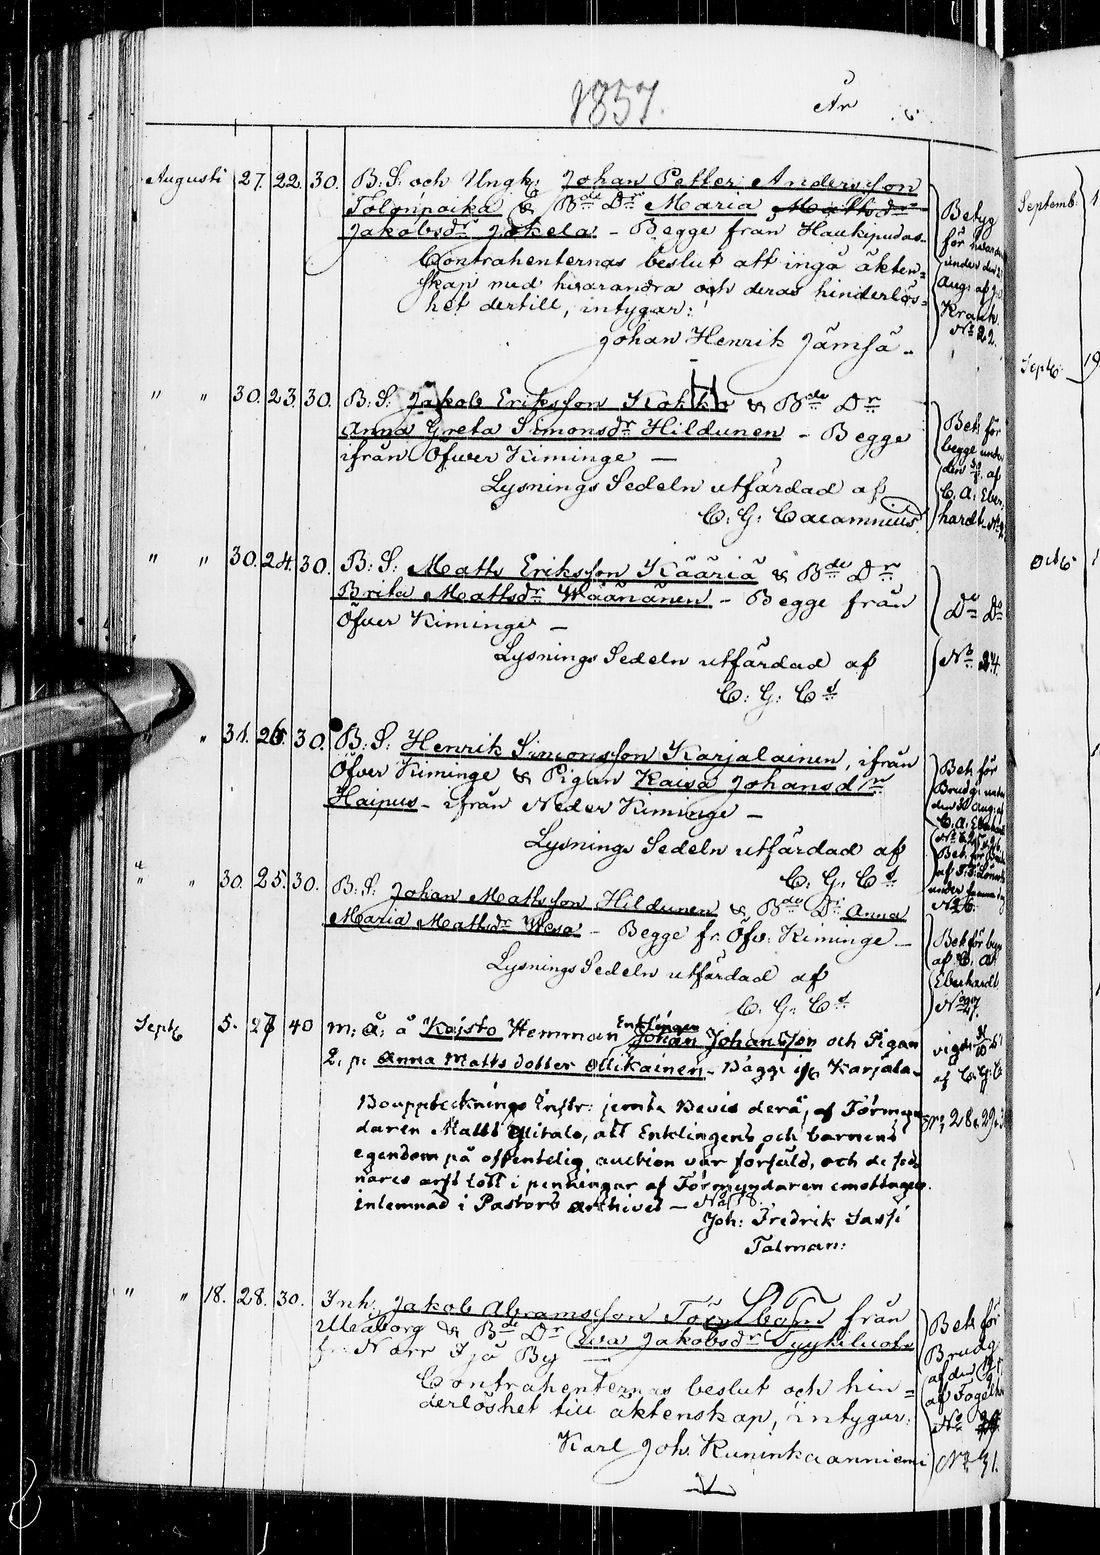 1857.
År
Augusti 27. 22. 30. B: S: och Ungk: Johan Petter Andersson
Tolonpoika & Bde Dr Maria Mattsdr
Jakobsdr Jokela - Begge från Haukipudas
Contrahenternas beslut att ingå äkten=
skap med hvarandra och deras hinderlös=
het dertill, intygar:
Johan Henrik Jämsä -
Betyg
för hvar
under den
Aug: af
Krank
No 22.
" " 30. 23. 30. B: S: Jakob Eriksson & Bde Dr
Anna Greta Simonsdr Hildunen - Begge
ifrån Öfwer Kiminge —
Lysnings Sedeln utfärdad af
C: G: Calamnius
Bet: för
begge under
den af
C. A: Eber
hardt
" " 30. 24. 30. B: S: Matts Eriksson Kääriä & Bde Dr
Brita Mattsdr Wäänänen - Begge från
Öfver Kiminge —
Lysnings Sedeln utfärdad af
C: G: Cs
Do Do
No 24.
" 31. 26 30. B: S: Henrik Simonsson Karjalainen, ifrån
Öfver Kiminge & Pigan Kaisa Johansdr
Haipus - ifrån Neder Kiminge —
Lysnings Sedeln utfärdad af
C: G: Cs
Bet: för
Brudg: under
den 30 Aug: af
C. A: Eberhardt
Bet: för
under samma dag
No 26.
" " 30. 25. 30. B: S: Johan Mathsson Hildunen & Bde Dr Anna
Maria Mattsdr Wesa - Begge fr: Öfv: Kiminge —
Lysnings Sedeln utfärdad af
C: G: Cs
Bet för
af C. A.
Eberhardt
No 27.
Sept 5. 27 40 m: å: å Kojsto Hemman Enklingen Johan Johansson och Pigan
2. p: Anna Matts dotter Ollikainen - Bägge Karjala-
Boupptecknings Instr: jemte Bevis derå, af Förmyn
daren Matts Ylitalo, att Enklingens och barnens
egendom på offentelig auction var försåld, och de sed
nares arfs lott i penningar af Förmyndaren emottagen
inlemnad i Pastors archivet — No 18.
Joh: Fredrik Sassi
Talman:
vigde
af C: G: C
No 28, 29,
" " 18. 28. 30. Inh: Jakob Abramsson Törnbom från
Uleåborg & Bde Dr Eva Jakobsdr
fr: Norr Ijå By —
Contrahenternas beslut och hin=
derlöshet till äktenskap, intygar:
Karl Joh. Kuninkaanniemi
Bet för
Brudg
af den
af
No
No 31.
Septemb:
Sept: 19
Octb: